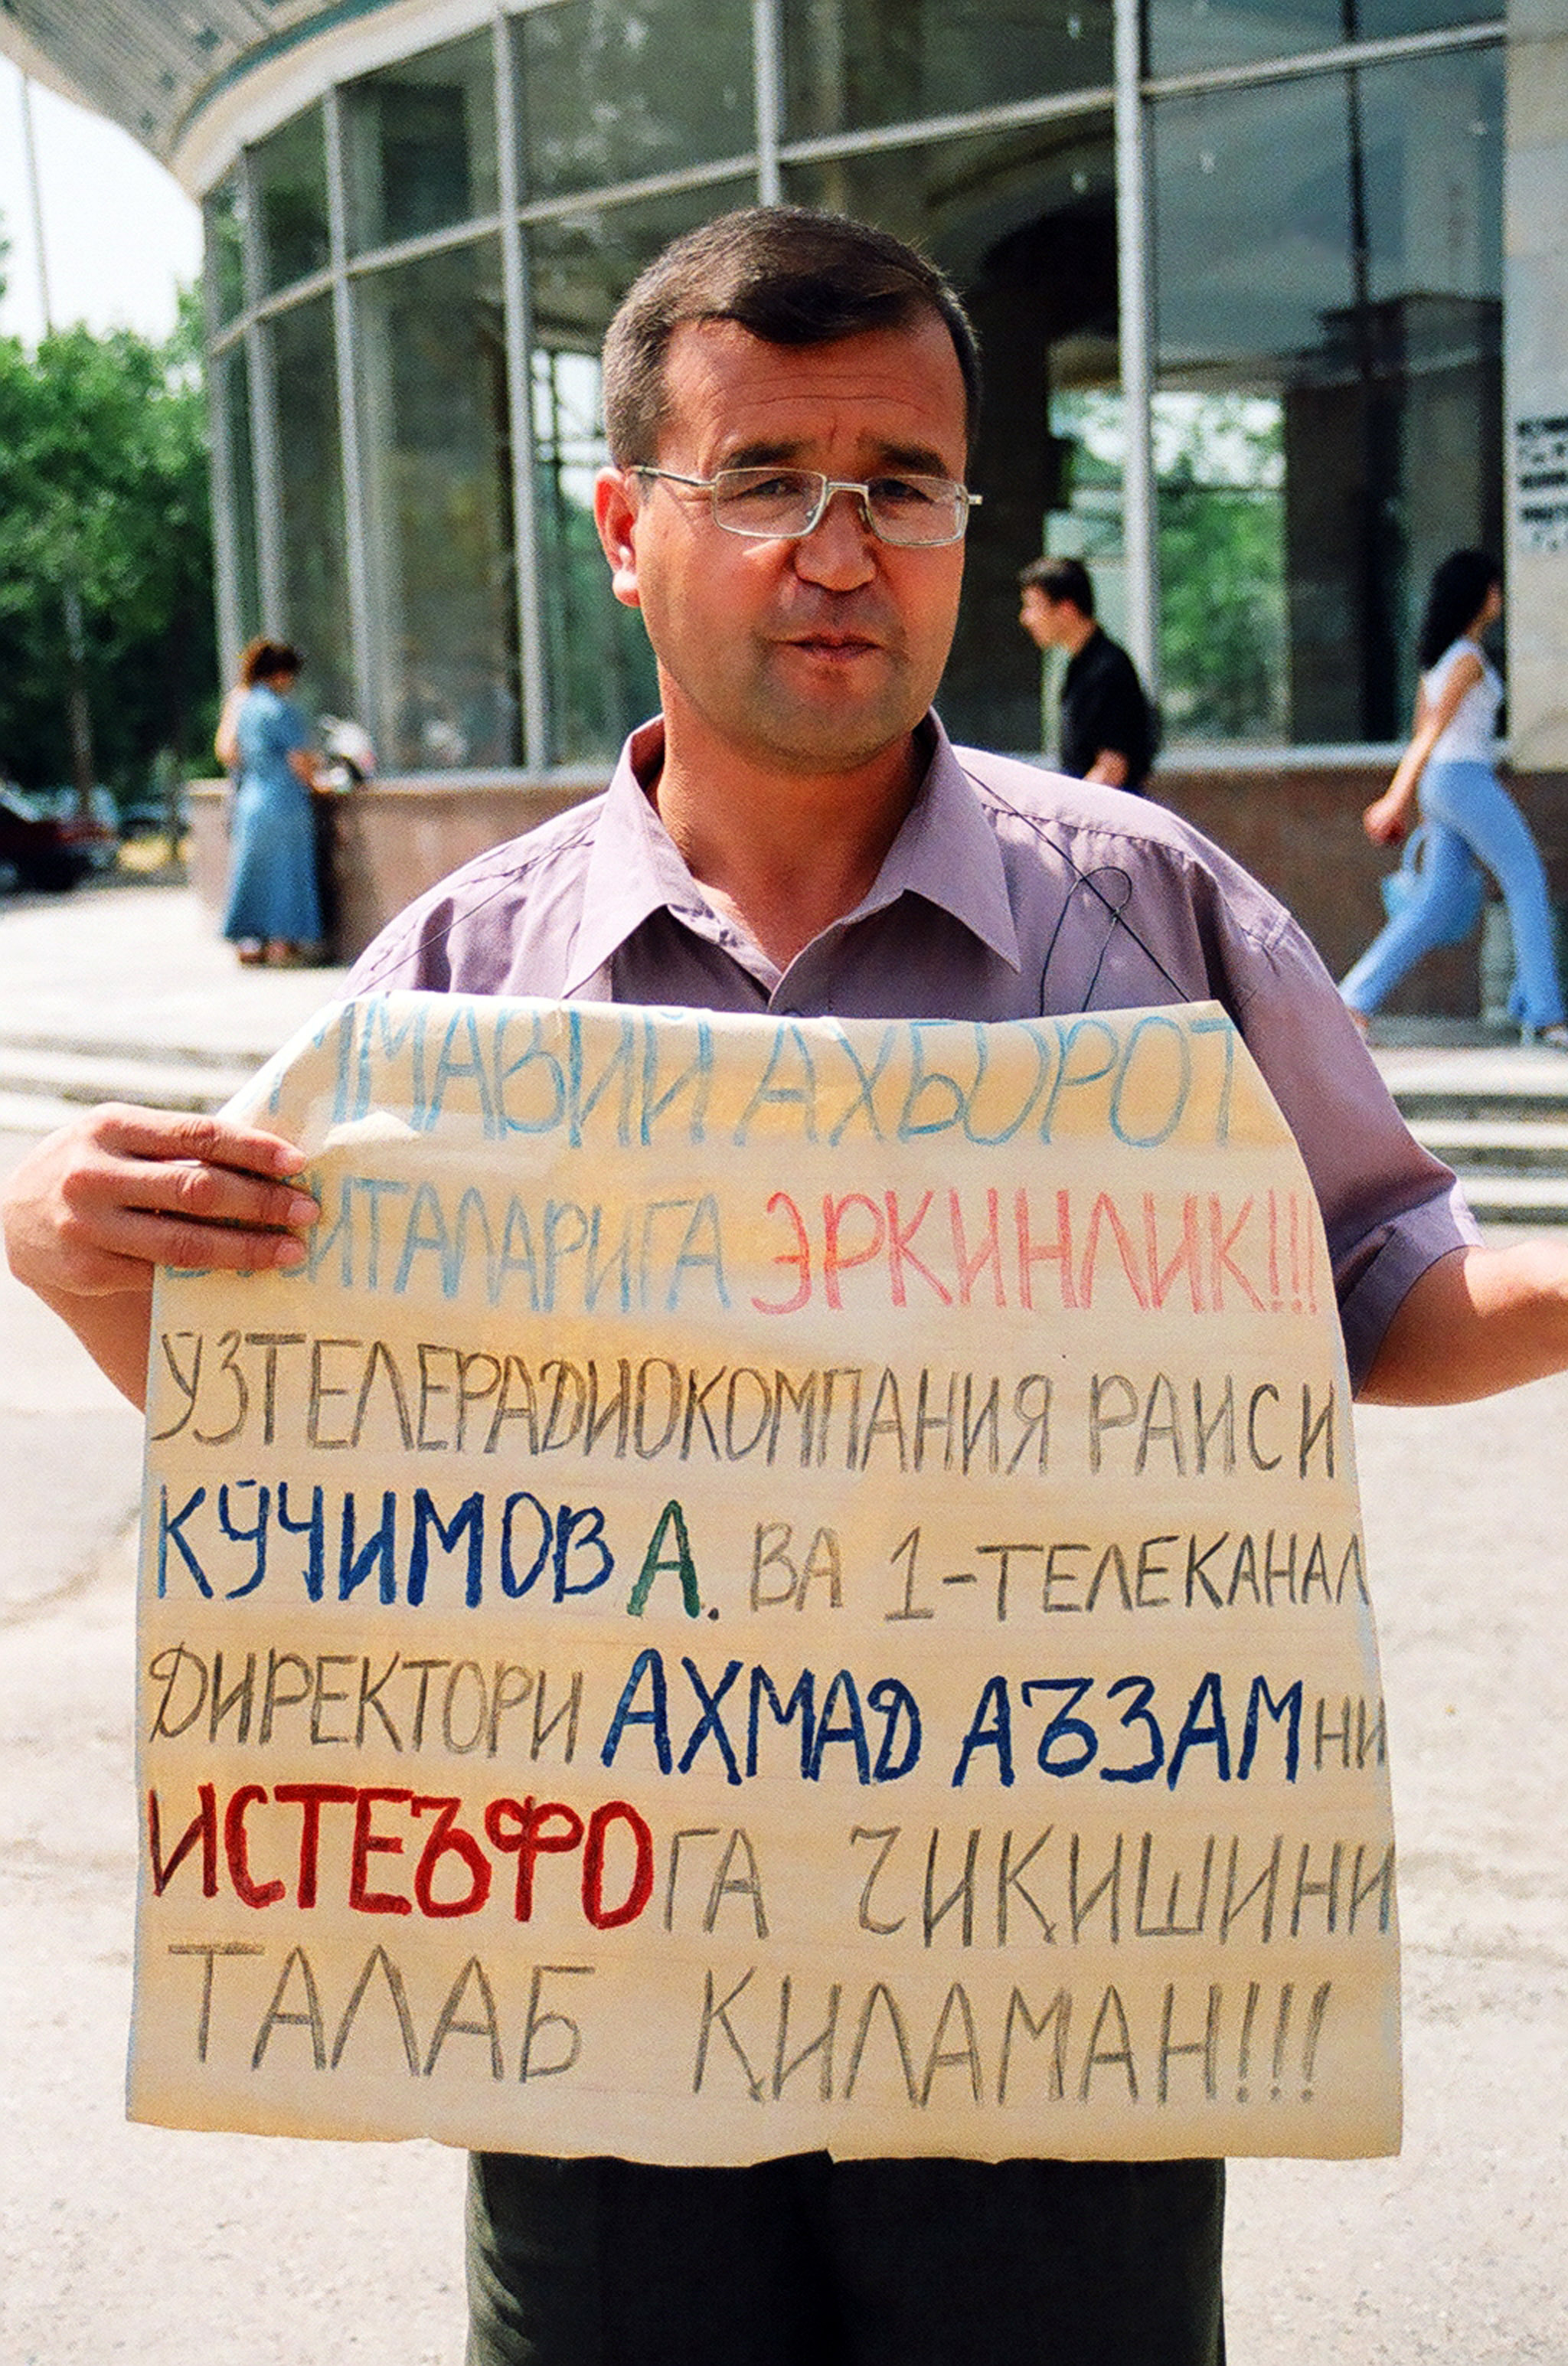 ММАВИЙ АХБОРОТ
ВОСИТАЛАРИГА ЭРКИНЛИК!!!
ЎЗТЕЛЕРАДИОКОМПАНИЯ РАИСИ
КЎЧИМОВ А. ВА 1-ТЕЛЕКАНАЛ
ДИРЕКТОРИ АХМАД АЪЗАМНИ
ИСТЕЪФОГА ЧИҚИШИНИ
ТАЛАБ ҚИЛАМАН!!!